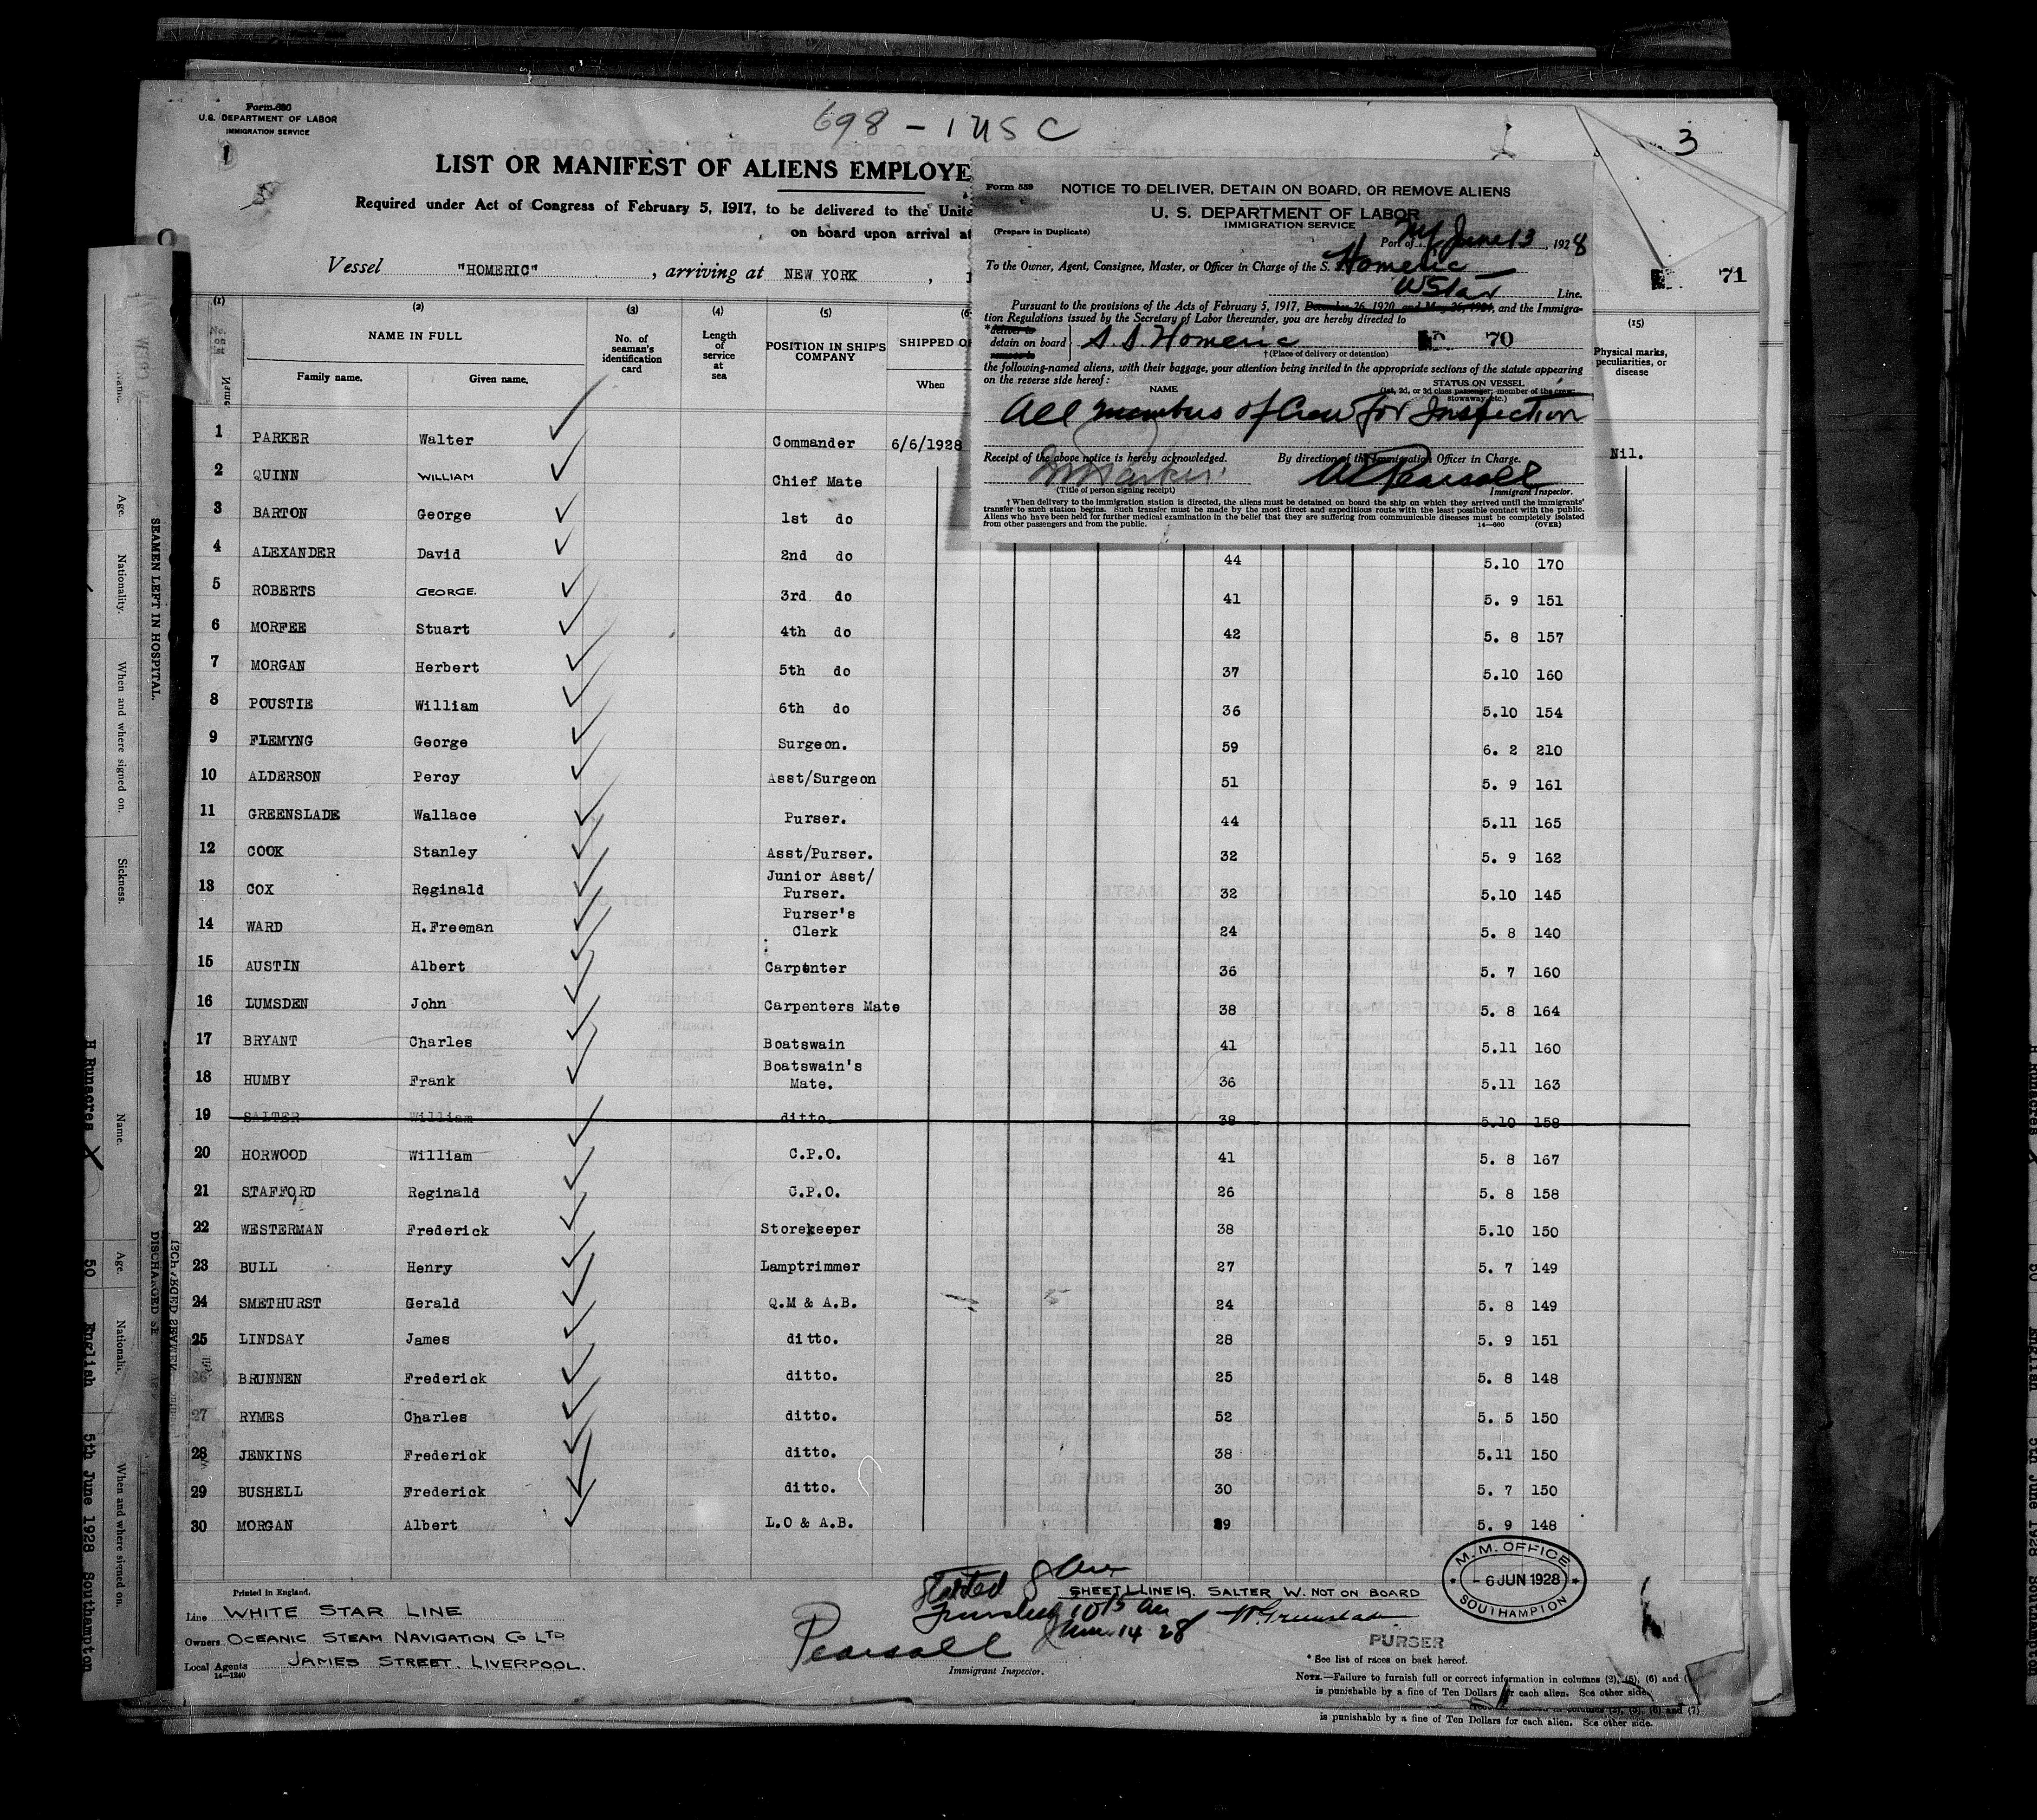 Form 680
U.S. DEPARTMENT OF LABOR
IMMIGRATION SERVICE
698 - 1
3
LIST OR MANIFEST OF ALIENS EMPLOYE
Required under Act of Congress of February 5, 1917, to be delivered to the Unite
on board upon arrival at
Vessel "HOMERIC", arriving at NEW YORK,
71
Form 559
NOTICE TO DELIVER, DETAIN ON BOARD, OR REMOVE ALIENS
U. S. DEPARTMENT OF LABOR
IMMIGRATION SERVICE
(Prepare in Duplicate)
Port of NY June 13, 1928
To the Owner, Agent, Consignee, Master, or Officer in Charge of the S. Homeric
W Star Line.
Pursuant to the provisions of the Acts of February 5, 1917, December 26, 1920, and May 26, 1924, and the Immigra-
tion Regulations issued by the Secretary of Labor thereunder, you are hereby directed to
*deliver to
detain on board S. S. Homeric 70
remove to
†(Place of delivery or detention)
the following-named aliens, with their baggage, your attention being invited to the appropriate sections of the statute appearing
on the reverse side hereof:
NAME
STATUS ON VESSEL
(1st, 2d, or 3d class passenger; member of the crew;
stowaway, etc.)
All members of Crew for Inspection
Receipt of the above notice is hereby acknowledged.
By direction of the Immigration Officer in Charge.
Pearsall
(Title of person signing receipt)
Immigrant Inspector.
†When delivery to the immigration station is directed, the aliens must be detained on board the ship on which they arrived until the immigrants'
transfer to such station begins. Such transfer must be made by the most direct and expeditious route with the least possible contact with the public.
Aliens who have been held for further medical examination in the belief that they are suffering from communicable diseases must be completely isolated
from other passengers and from the public.
14—660 (OVER)
(1) (2) (3) (4) (5) (15)
No. on list
NAME IN FULL
Family name. Given name.
No. of seaman's identification card
Length of service at sea
POSITION IN SHIP'S COMPANY
SHIPPED O
When
Physical marks, peculiarities, or disease
1 PARKER Walter Commander 6/6/1928 Nil.
2 QUINN WILLIAM Chief Mate
3 BARTON George 1st do
4 ALEXANDER David 2nd do 44 5.10 170
5 ROBERTS GEORGE. 3rd do 41 5. 9 151
6 MORFEE Stuart 4th do 42 5. 8 157
7 MORGAN Herbert 5th do 37 5.10 160
8 POUSTIE William 6th do 36 5.10 154
9 FLEMYNG George Surgeon. 59 6. 2 210
10 ALDERSON Percy Asst/Surgeon 51 5. 9 161
11 GREENSLADE Wallace Purser. 44 5.11 165
12 COOK Stanley Asst/Purser. 32 5. 9 162
13 COX Reginald Junior Asst/ Purser. 32 5.10 145
14 WARD H.Freeman Purser's Clerk 24 5. 8 140
15 AUSTIN Albert Carpenter 36 5. 7 160
16 LUMSDEN John Carpenters Mate 38 5. 8 164
17 BRYANT Charles Boatswain 41 5.11 160
18 HUMBY Frank Boatswain's Mate. 36 5.11 163
19 SALTER William ditto. 38 5.10 158
20 HORWOOD William C.P.O. 41 5. 8 167
21 STAFFORD Reginald C.P.O. 26 5. 8 158
22 WESTERMAN Frederick Storekeeper 38 5.10 150
23 BULL Henry Lamptrimmer 27 5. 7 149
24 SMETHURST Gerald Q.M & A.B. 24 5. 8 149
25 LINDSAY James ditto. 28 5. 9 151
26 BRUNNEN Frederick ditto. 25 5. 8 148
27 RYMES Charles ditto. 52 5. 5 150
28 JENKINS Frederick ditto. 38 5.11 150
29 BUSHELL Frederick ditto. 30 5. 7 150
30 MORGAN Albert L.O & A.B. 39 5. 9 148
Printed in England.
Line WHITE STAR LINE
Owners OCEANIC STEAM NAVIGATION CO LTD
Local Agents JAMES STREET. LIVERPOOL.
14—1240
Started 8 am
SHEET 1 LINE 19. SALTER W. NOT ON BOARD
Finished 10 15 am
June 14 28
Pearsall
Immigrant Inspector.
M.M. OFFICE
- 6 JUN 1928
SOUTHAMPTON
PURSER
* See list of races on back hereof.
NOTE.—Failure to furnish full or correct information in columns (2), (5), (6) and (
is punishable by a fine of Ten Dollars for each alien. See other side.
in columns (2), (5), (6) and (7)
is punishable by a fine of Ten Dollars for each alien. See other side.
SEAMEN LEFT IN HOSPITAL.
Name. Age. Nationality. When and where signed on. Sickness.
DISCHARGED SE
Name. Age. Nationali When and where signed on.
H Runacres X 50 English 5th June 1928 Southampton